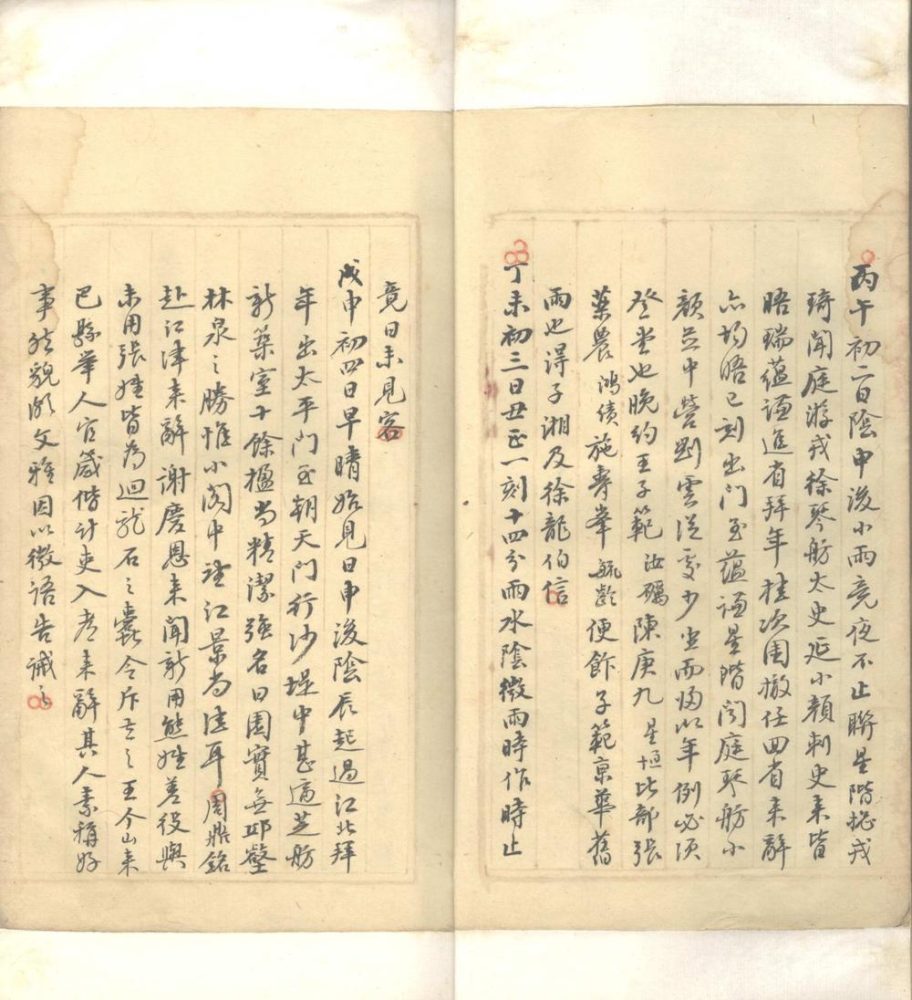 丙午初二日陰申後小雨竟夜不止聯星階摠戎
琦閣庭游戎徐琴舫太史延小顏刺史来皆
晤瑞蘊謙進省拜年桂次園撤任回省来辭
亦均晤巳刻出门至蘊謙星階閣庭琴舫小
顏并中營劉雲從處少坐而歸以年例必須
登堂也晚約王子範汝礪陳庚九星垣比部張
藥農鴻績施壽峯毓齡便飯子範京華舊
雨也得子湘及徐龍伯信
丁未初三日丑正一刻十四分雨水陰微雨時作時止
竟日未見客
戊申初四日早晴始見日申後陰辰起過江北拜
年出太平门至朝天门行沙堤中甚適芝舫
新築室十餘楹尚精潔強名曰園實無邱壑
林泉之勝惟小閣中望江景尚佳耳周鼎銘
赴江津来辭謝慶恩来聞新用熊姓差役與
未用張姓皆為迴龍石之蠹令斥去之王今山来
巴縣舉人官箴偕計吏入考来辭其人素稱好
事然貌頗文雅因以微語告誡之